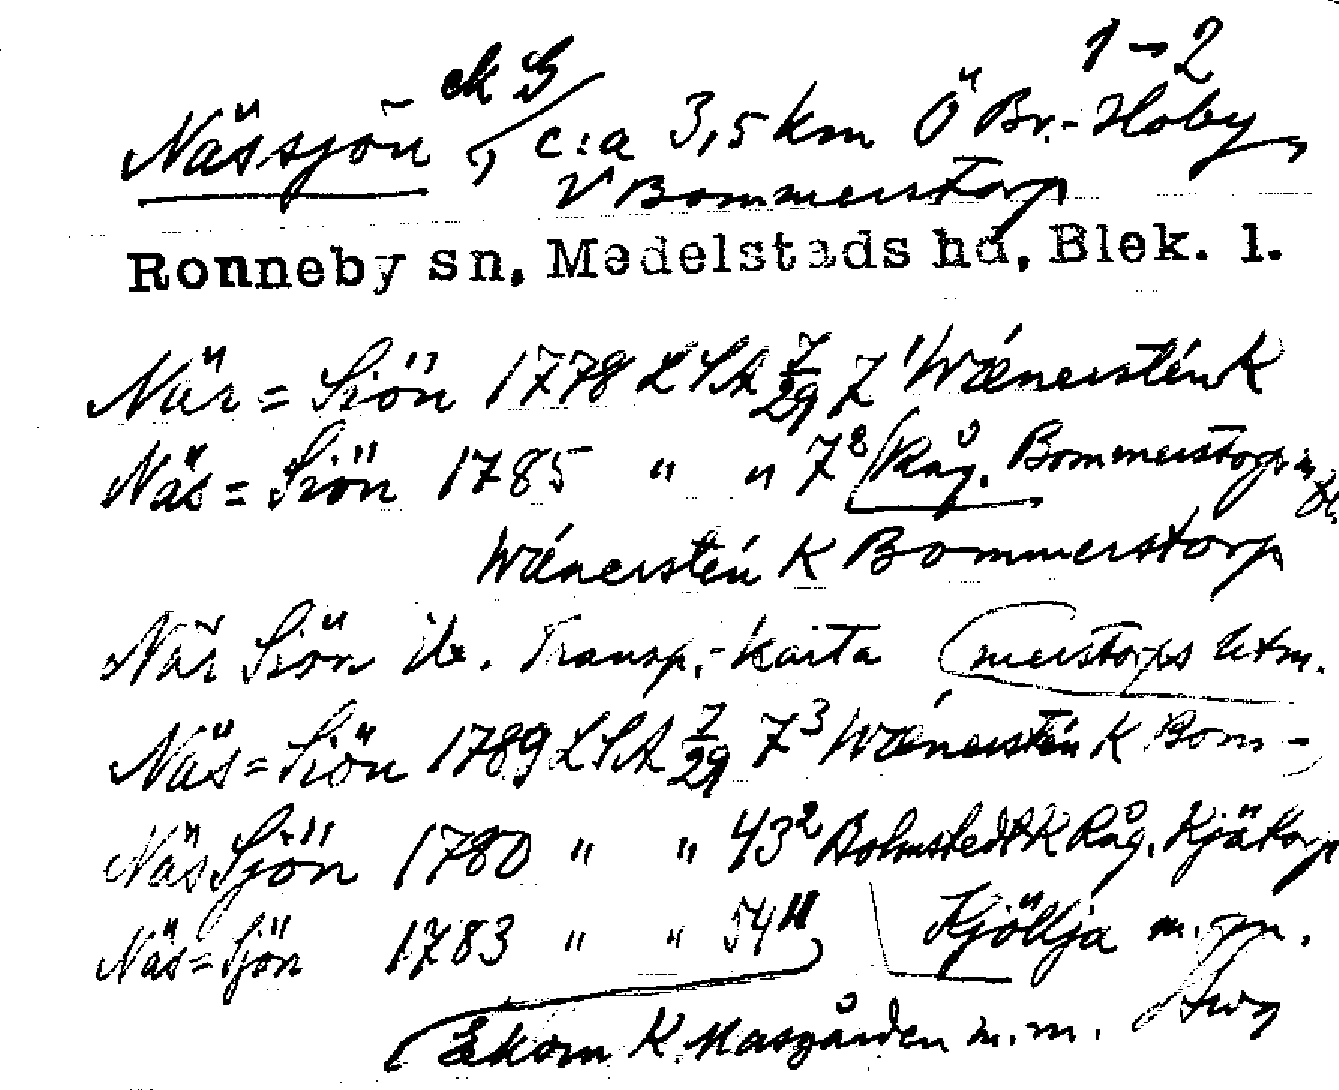 ek G 1-2
Nässjön, c:a 3,5 km Ö Br.-Hoby,
V Bommerstorp
Ronneby sn, Medelstads hd, Blek. l.
När=Siön 1778 LSA 7/29 7¹ Wänerstén K
Näs=Siön 1785 " " 7² Råg. Bommerstorp
Wänerstén K Bommerstorp
När Siön Transp.-karta merstorps utm.
Näs=Siön 1789 LSA 7/29 7³ Wänerstén K Bom-
Näs Sjön 1780 " " 43² Bolmstedt K Råg. Kjätorp
Näs=Sjön 1783 " " 54 Kjöllja m.m.
Ekorn K. Masgården m.m.